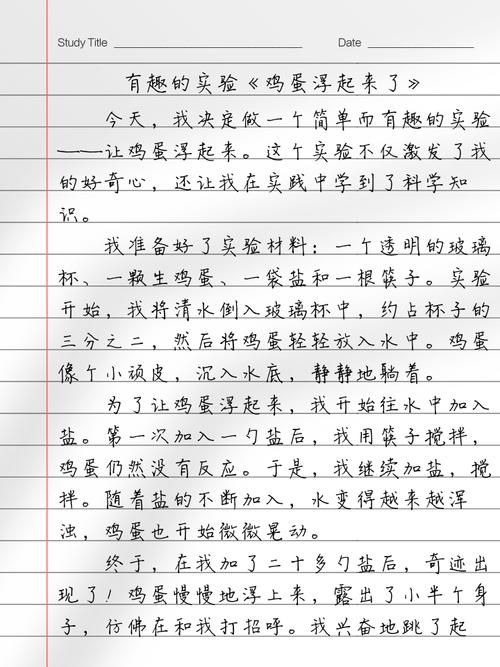 Study Title Date
有趣的实验《鸡蛋浮起来了》
今天，我决定做一个简单而有趣的实验
——让鸡蛋浮起来。这个实验不仅激发了我
的好奇心，还让我在实践中学到了科学知
识。
我准备好了实验材料：一个透明的玻璃
杯、一颗生鸡蛋、一袋盐和一根筷子。实验
开始，我将清水倒入玻璃杯中，约占杯子的
三分之二，然后将鸡蛋轻轻放入水中。鸡蛋
像个小顽皮，沉入水底，静静地躺着。
为了让鸡蛋浮起来，我开始往水中加入
盐。第一次加入一勺盐后，我用筷子搅拌，
鸡蛋仍然没有反应。于是，我继续加盐，搅
拌。随着盐的不断加入，水变得越来越浑
浊，鸡蛋也开始微微晃动。
终于，在我加了二十多勺盐后，奇迹出
现了！鸡蛋慢慢地浮上来，露出了小半个身
子，仿佛在和我打招呼。我兴奋地跳了起